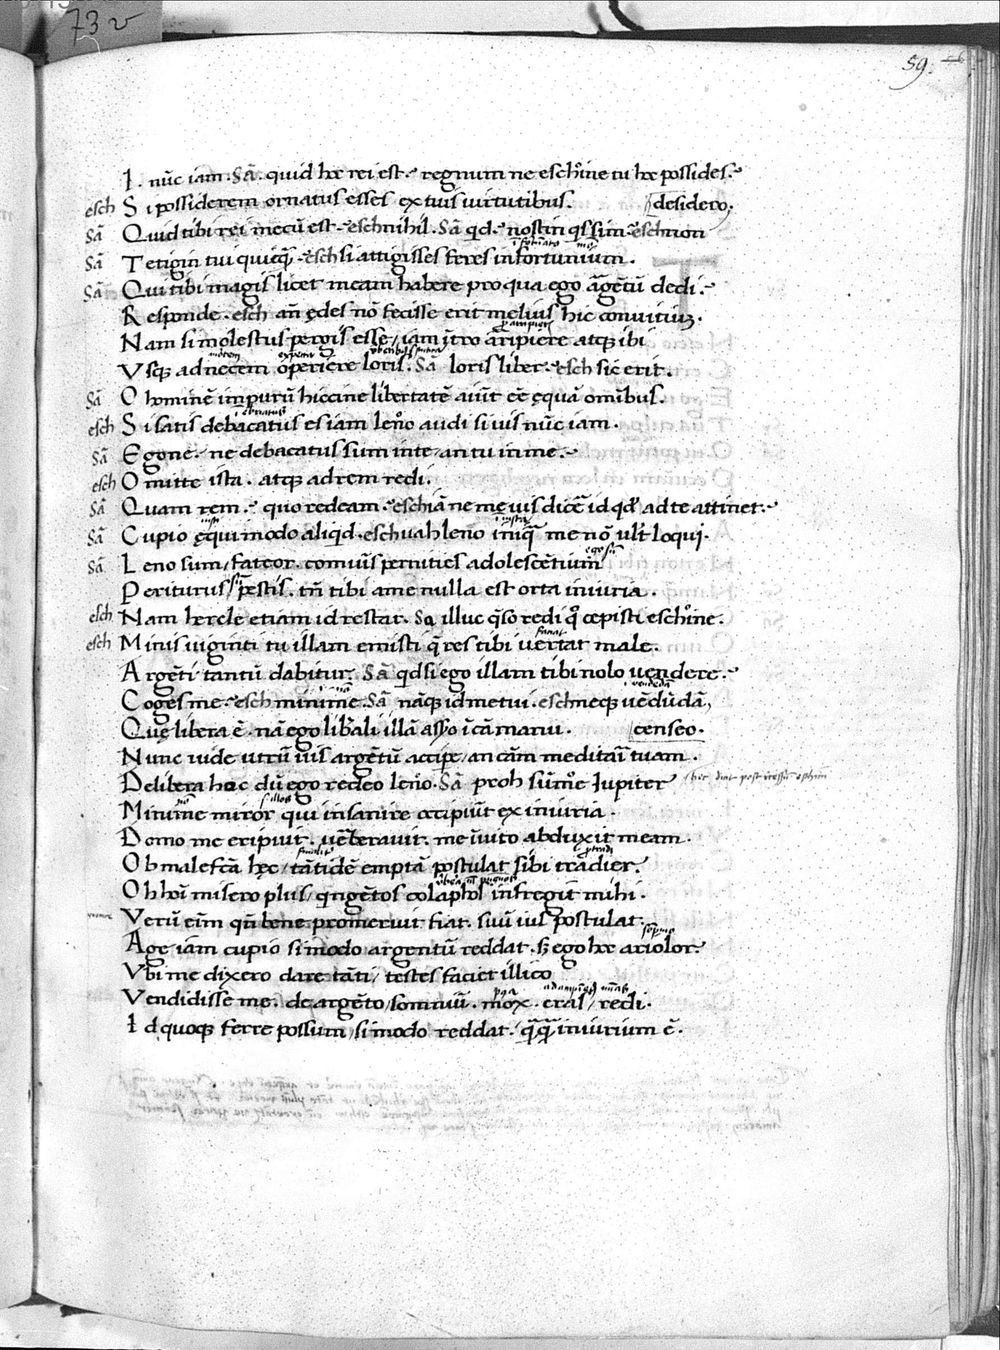 73 v
59.
I. nūc iam. Sā. quid hoc rei est. regnum ne eschine tu hoc possides.
esch Si possiderem ornatus esses ex tuis uirtutibus. desidero.
Sā Quid tibi rei mecū est. esch nihil. Sā qd. nostin qs sim. esch non
Sā Tetigin tui quicq̄. esch si attigisses feres infortunium.
Sā Qui tibi magis licet meam habere pro qua ego āgētū dedi.
Responde. esch añ ędes nō fecisse erit melius hic conuitiū.
Nam si molestus pergis esse, iam ītro aripiere atqꝫ ibi
Vsqꝫ ad necem operiere loris. Sā loris liber. esch sic erit.
Sā O hominē impurū hiccine libertatē aiūt eē ęquā omībus.
esch Si satis debacatus es iam leno audi si uis nūc iam.
Sā Egone. ne debacatus sum in te, an tu in me.
esch Omitte ista. atqꝫ ad rem redi.
Sā Quam rem. quo redeam. esch iā ne me uis dicē id qd ad te attinet.
Sā Cupio ęqui modo aliqid. esch uah leno iniq̄ me nō ult loqui.
Sā Leno sum, fateor. comūis pernities adolescētium
Periturus, pestis. tñ tibi a me nulla est orta iniuria.
esch Nam hercle etiam id restat. Sa illuc qso redi qo cepisti eschine.
esch Minis uiginti tu illam emisti q̄ res tibi uertat male.
Argēti tantū dabitur. Sā qd si ego illam tibi nolo uendere.
Coges me. esch minime. Sā nāqꝫ id metui. esch neqꝫ uēdūdā,
Quę libera ē. nā ego libali illā assero cā manu. censeo.
Nunc uide utrū uis argētū accipe, an cām meditari tuam.
Delibera hoc dū ego redeo leno. Sā proh sūme Iupiter
Minime miror qui insanire occipiūt ex iniuria.
Domo me eripuit. uēberauit. me īuito abduxit meam.
Ob malefcā hęc, tātidē emptā postulat sibi tradier.
Oh hoi misero plus, qngētos colaphos infregit mihi.
Verū eim qñ bene promeruit fiat. suū ius postulat.
Age iam cupio si modo argentū reddat. sꝫ ego hoc ariolor.
Vbi me dixero dare tāti, testes faciet illico
Vendidisse me. de argēto, somniū. mox. cras, redi.
Id quoqꝫ ferre possum, si modo reddat. q̄q̄ iniurium ē.